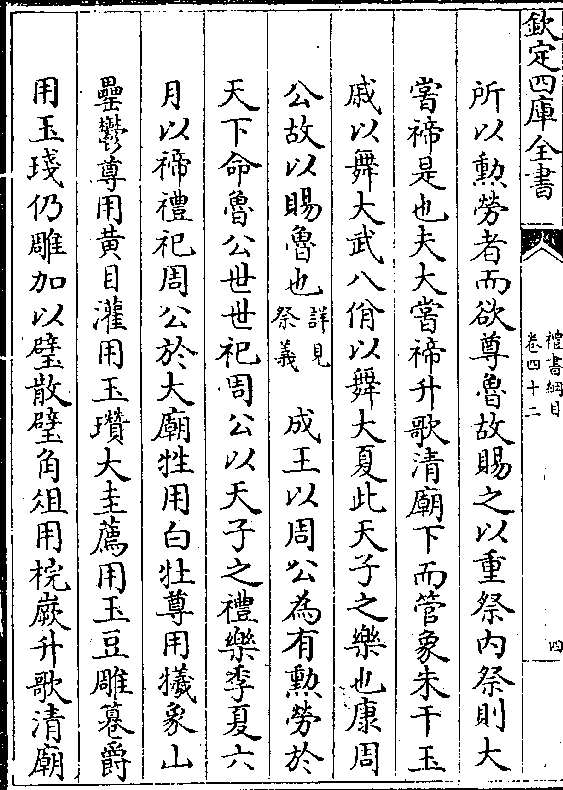 欽定四庫全書
禮書綱目
卷四十二
四
所以勲勞者而欲尊魯故賜之以重祭内祭則大
嘗禘是也夫大嘗禘升歌清廟下而管象朱干玉
戚以舞大武八佾以舞大夏此天子之樂也康周
公故以賜魯也
詳見
祭義
成王以周公為有勲勞於
天下命魯公世世祀周公以天子之禮樂季夏六
月以禘禮祀周公於大廟牲用白牡尊用犧象山
罍鬱尊用黄目灌用玉瓚大圭薦用玉豆雕篹爵
用玉琖仍雕加以璧散璧角俎用梡嶡升歌清廟